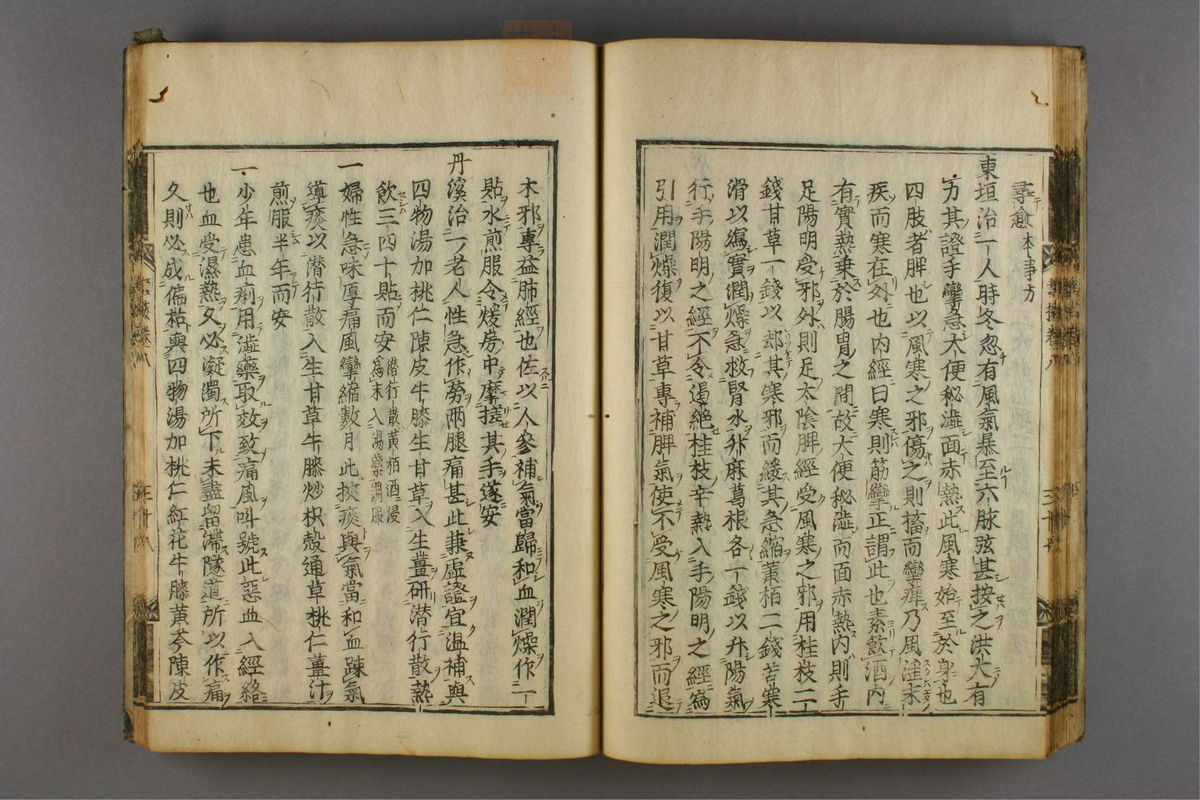 尋愈本事方
東垣治一人時冬忽有風氣暴至六脉弦甚按之洪大有
力其證手攣急大便秘澁面赤熱此風寒始至於身也
四肢者脾也以風寒之邪傷之則搐而攣痺乃風淫末
疾而寒在外也内經曰寒則筋攣正謂此也素飲酒内
有實熱乗於腸胃之間故大便秘澁而面赤熱内則手
足陽明受邪外則足太陰脾經受風寒之邪用桂枝二
錢甘草一錢以却其寒邪而緩其急縮黄栢二錢苦寒
滑以瀉實潤燥急救腎水升麻葛根各一錢以升陽氣
行手陽明之經不令遏絶桂枝辛熱入手陽明之經爲
引用潤燥復以甘草專補脾氣使不受風寒之邪而退
木邪專益肺經也佐以人參補氣當歸和血潤燥作一
貼水煎服令煖房中摩搓其手遂安
丹溪治一老人性急作勞兩腿痛甚此兼虚證宜温補與
四物湯加桃仁陳皮牛膝生甘草入生薑研潜行散熱
飲三四十貼而安潜行散黄栢酒浸
爲末入湯藥調服
一婦性急味厚痛風攣縮數月此挾痰與氣當和血疎氣
導痰以潜行散入生甘草牛膝炒枳殼通草桃仁薑汁
煎服半年而安
一少年患血痢用澁藥取效致痛風叫號此惡血入經絡
也血受濕熱久必凝濁所下未盡留滯隧道所以作痛
久則必成偏枯與四物湯加桃仁紅花牛膝黄芩陳皮